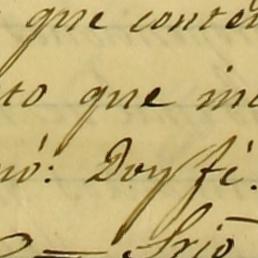 que conten
to que in
nó: Doy fé.
Srio